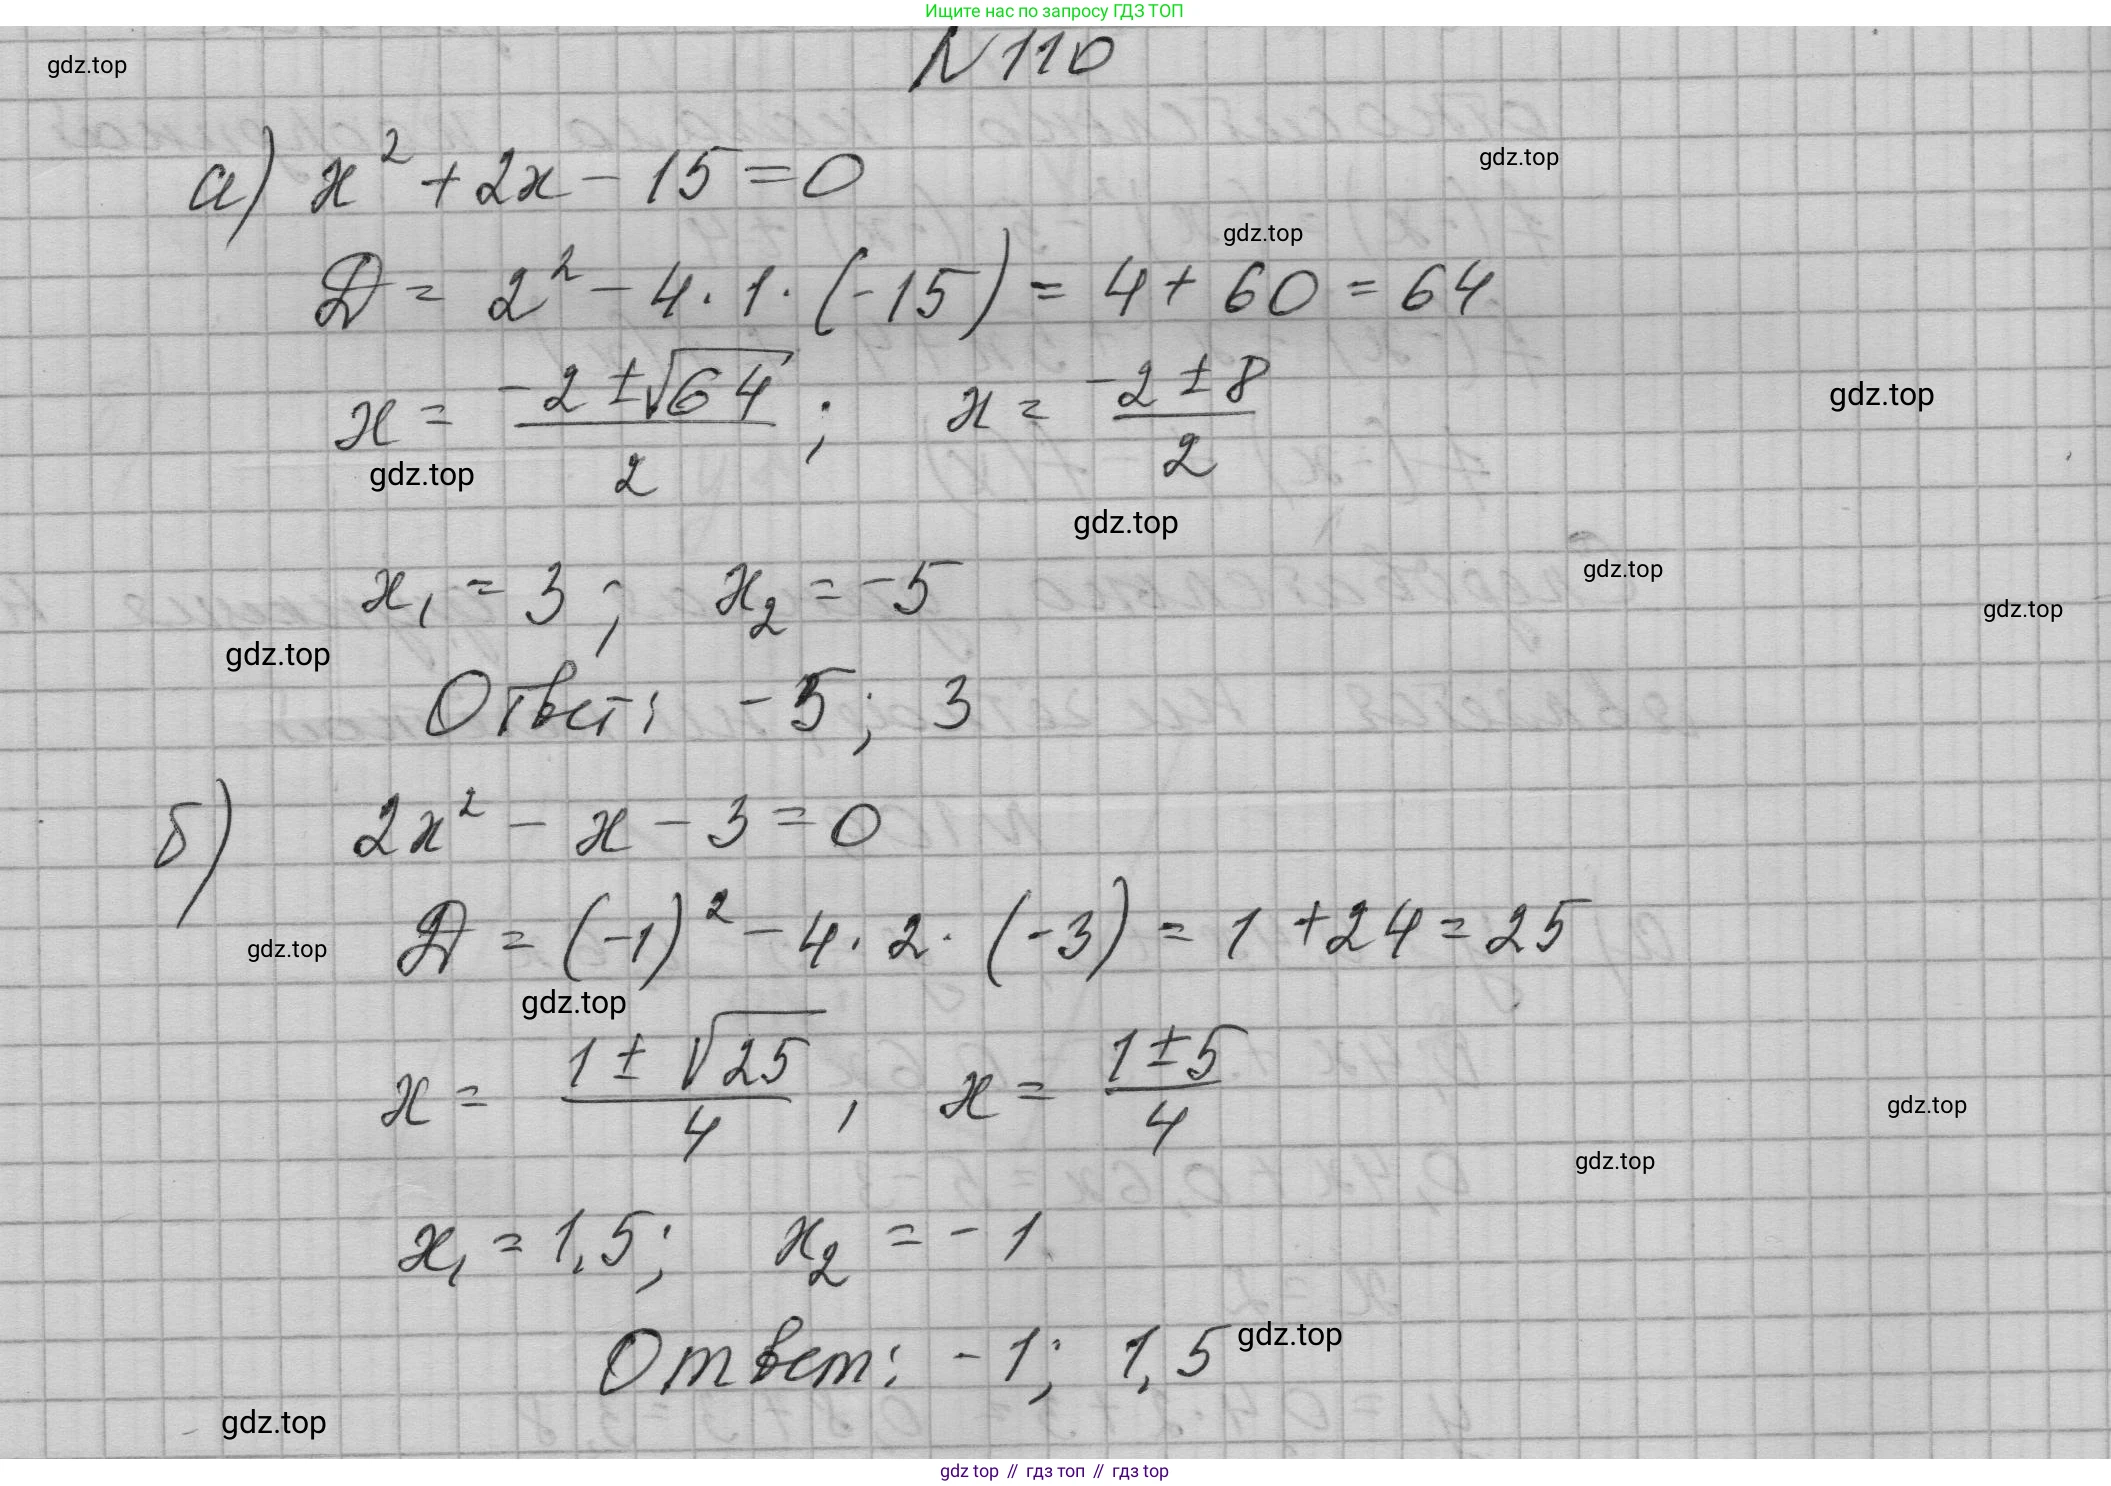 Ищите нас по запросу ГДЗ ТОП
N 110
gdz.top
а) x² + 2x - 15 = 0
gdz.top
gdz.top
D = 2² - 4 · 1 · (-15) = 4 + 60 = 64
x = (-2 ± √64)/2 ; x = (-2 ± 8)/2
gdz.top
gdz.top
gdz.top
x₁ = 3 ; x₂ = -5
gdz.top
gdz.top
gdz.top
Ответ: -5; 3
б) 2x² - x - 3 = 0
D = (-1)² - 4 · 2 · (-3) = 1 + 24 = 25
gdz.top
gdz.top
x = (1 ± √25)/4 , x = (1 ± 5)/4
gdz.top
gdz.top
x₁ = 1,5; x₂ = -1
Ответ: -1; 1,5
gdz.top
gdz.top
gdz top // гдз топ // гдз top